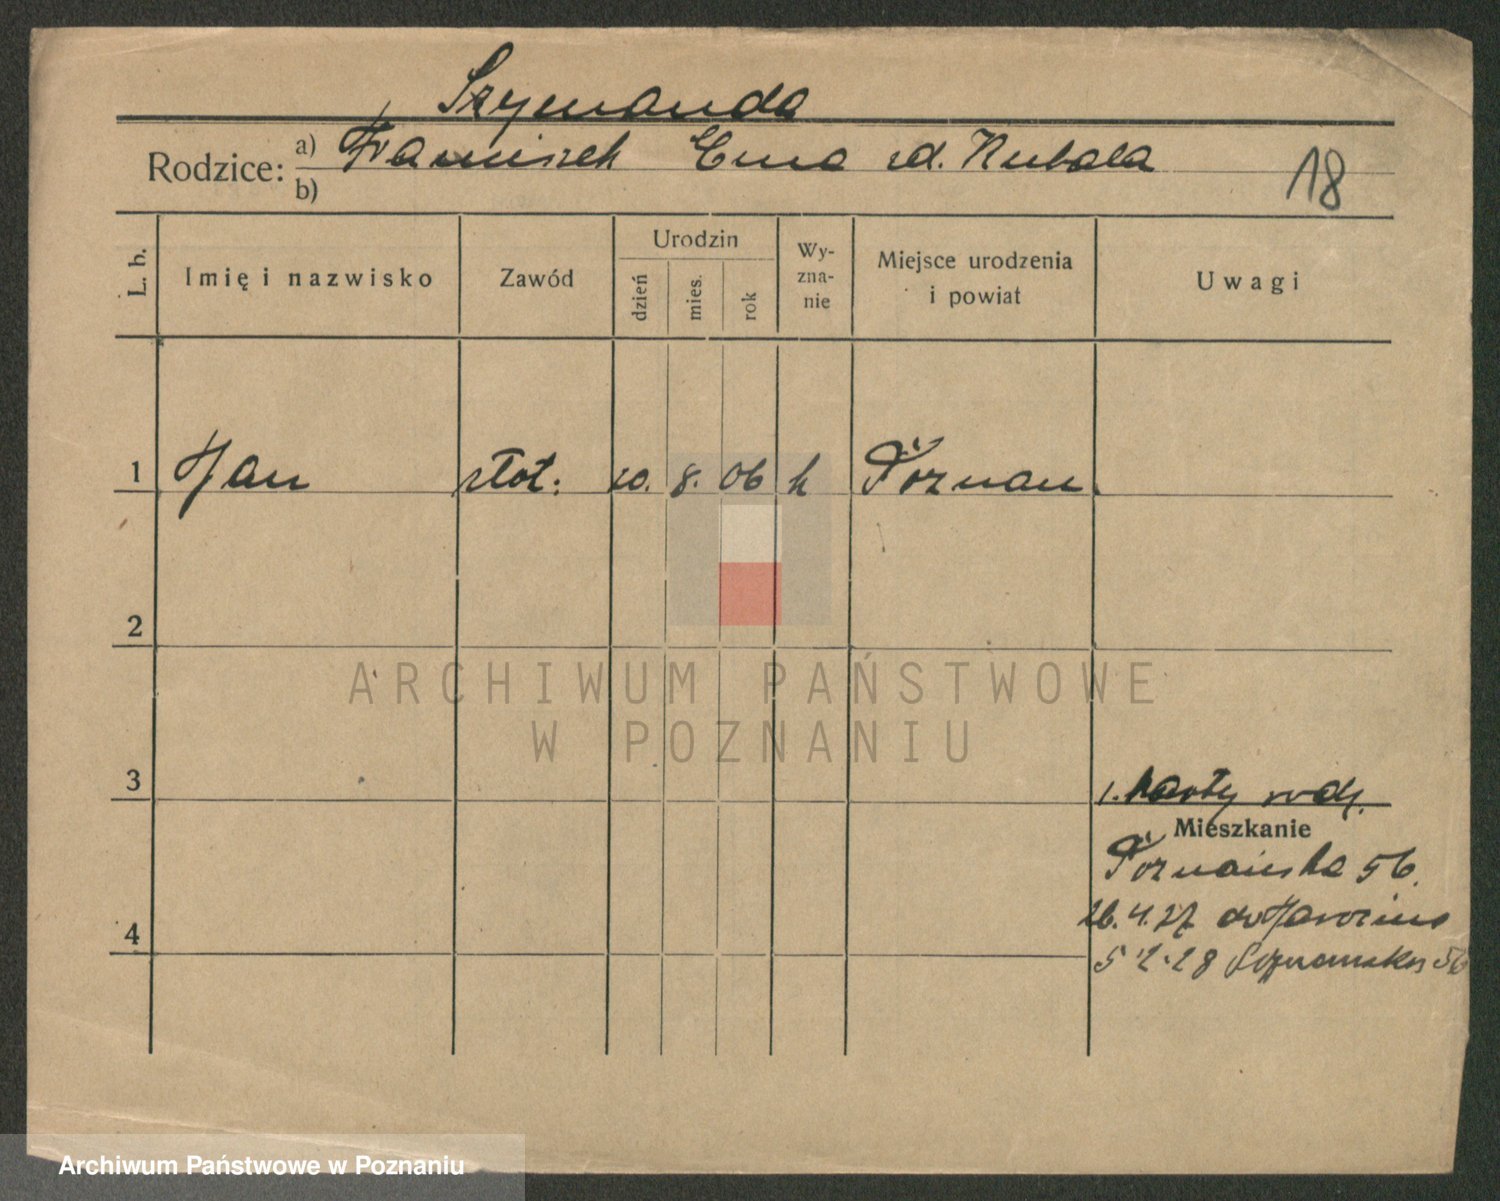 Szymanda
Rodzice: a) Franciszek Ema zd. Kubala
b)
18
L. b.
Imię i nazwisko
Zawód
Urodzin
dzień
mies.
rok
Wy-
zna-
nie
Miejsce urodzenia
i powiat
Uwagi
1 Jan stol. 10. 8. 06 k Poznań.
2
ARCHIWUM PAŃSTWOWE
W POZNANIU
3
1. karty rodz.
Mieszkanie
Poznańska 56.
26.4.27 do Jarocina
4
5 2.28 Poznańska 56
Archiwum Państwowe w Poznaniu